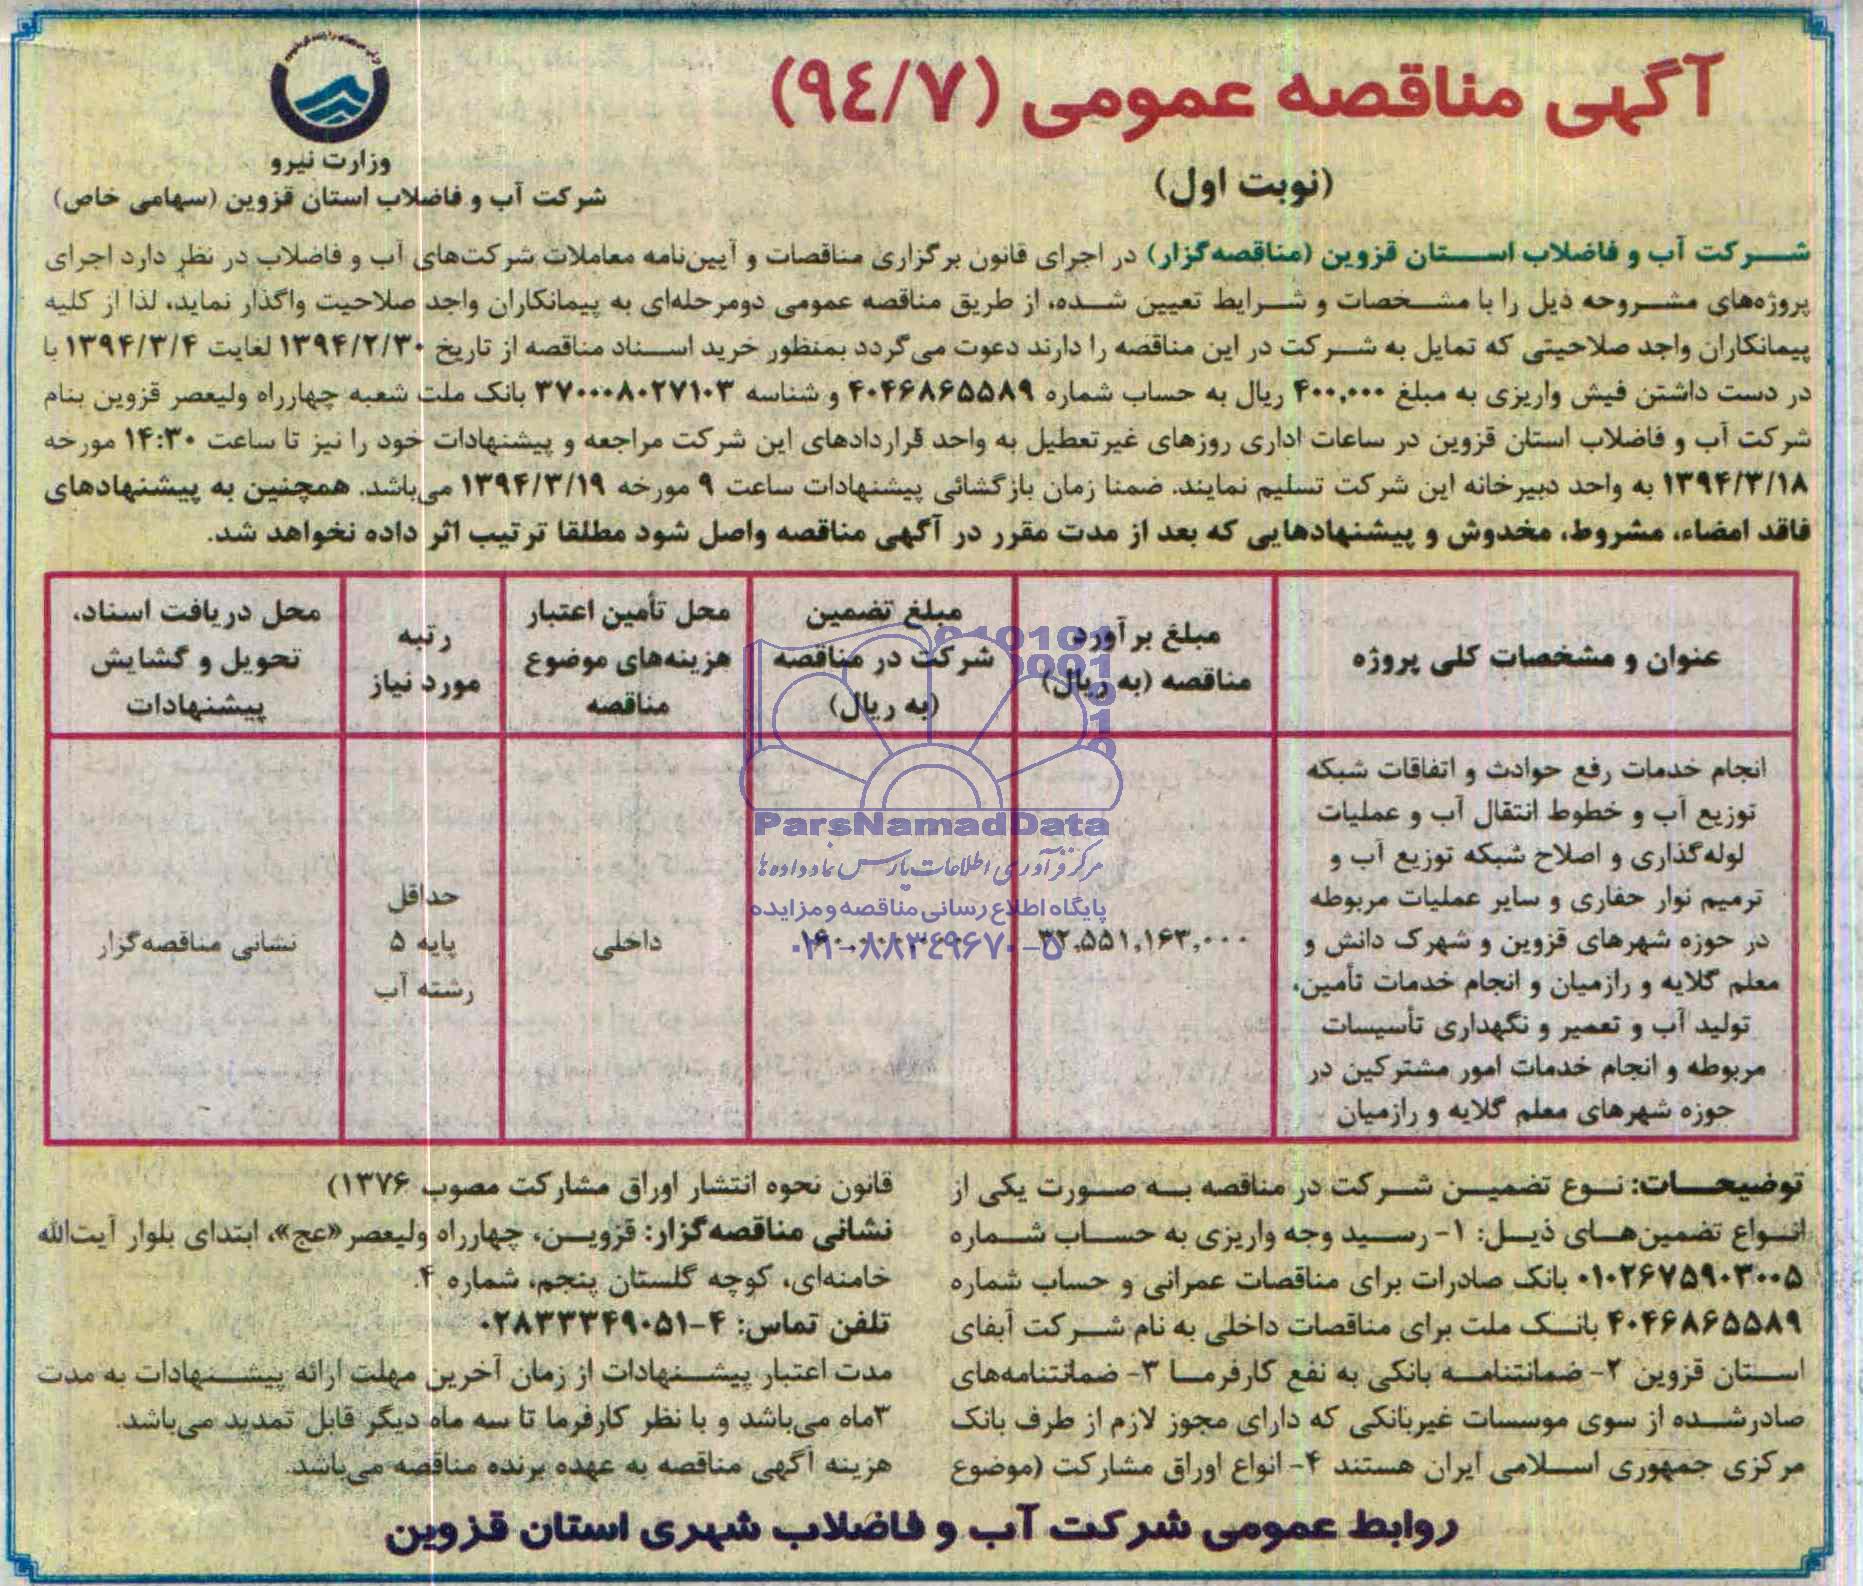 آگهی مناقصه عمومی (۹۴/۷)
(نوبت اول)
وزارت نیرو
شرکت آب و فاضلاب استان قزوین (سهامی خاص)
شرکت آب و فاضلاب استان قزوین (مناقصه‌گزار) در اجرای قانون برگزاری مناقصات و آیین‌نامه معاملات شرکت‌های آب و فاضلاب در نظر دارد اجرای
پروژه‌های مشروحه ذیل را با مشخصات و شرایط تعیین شده، از طریق مناقصه عمومی دومرحله‌ای به پیمانکاران واجد صلاحیت واگذار نماید، لذا از کلیه
پیمانکاران واجد صلاحیتی که تمایل به شرکت در این مناقصه را دارند دعوت می‌گردد بمنظور خرید اسناد مناقصه از تاریخ ۱۳۹۴/۲/۳۰ لغایت ۱۳۹۴/۳/۴ با
در دست داشتن فیش واریزی به مبلغ ۴۰۰,۰۰۰ ریال به حساب شماره ۴۰۴۶۸۶۵۵۸۹ و شناسه ۳۷۰۰۰۸۰۲۷۱۰۳ بانک ملت شعبه چهارراه ولیعصر قزوین بنام
شرکت آب و فاضلاب استان قزوین در ساعات اداری روزهای غیرتعطیل به واحد قراردادهای این شرکت مراجعه و پیشنهادات خود را نیز تا ساعت ۱۴:۳۰ مورخه
۱۳۹۴/۳/۱۸ به واحد دبیرخانه این شرکت تسلیم نمایند. ضمنا زمان بازگشائی پیشنهادات ساعت ۹ مورخه ۱۳۹۴/۳/۱۹ می‌باشد. همچنین به پیشنهادهای
فاقد امضاء، مشروط، مخدوش و پیشنهادهایی که بعد از مدت مقرر در آگهی مناقصه واصل شود مطلقا ترتیب اثر داده نخواهد شد.
عنوان و مشخصات کلی پروژه
مبلغ برآورد
مناقصه (به ریال)
مبلغ تضمین
شرکت در مناقصه
(به ریال)
محل تأمین اعتبار
هزینه‌های موضوع
مناقصه
رتبه
مورد نیاز
محل دریافت اسناد،
تحویل و گشایش
پیشنهادات
انجام خدمات رفع حوادث و اتفاقات شبکه
توزیع آب و خطوط انتقال آب و عملیات
لوله‌گذاری و اصلاح شبکه توزیع آب و
ترمیم نوار حفاری و سایر عملیات مربوطه
در حوزه شهرهای قزوین و شهرک دانش و
معلم کلایه و رازمیان و انجام خدمات تأمین،
تولید آب و تعمیر و نگهداری تأسیسات
مربوطه و انجام خدمات امور مشترکین در
حوزه شهرهای معلم کلایه و رازمیان
۳۲,۵۵۱,۱۶۳,۰۰۰
داخلی
حداقل
پایه ۵
رشته آب
نشانی مناقصه‌گزار
ParsNamadData
مرکز فرآوری اطلاعات پارس نماد داده‌ها
پایگاه اطلاع رسانی مناقصه و مزایده
۰۲۱-۸۸۳۴۹۶۷۰-۵
توضیحات: نوع تضمین شرکت در مناقصه به صورت یکی از
انواع تضمین‌های ذیل: ۱- رسید وجه واریزی به حساب شماره
۰۱۰۲۶۷۵۹۰۳۰۰۵ بانک صادرات برای مناقصات عمرانی و حساب شماره
۴۰۴۶۸۶۵۵۸۹ بانک ملت برای مناقصات داخلی به نام شرکت آبفای
استان قزوین ۲- ضمانتنامه بانکی به نفع کارفرما ۳- ضمانتنامه‌های
صادرشده از سوی موسسات غیربانکی که دارای مجوز لازم از طرف بانک
مرکزی جمهوری اسلامی ایران هستند ۴- انواع اوراق مشارکت (موضوع
قانون نحوه انتشار اوراق مشارکت مصوب ۱۳۷۶)
نشانی مناقصه‌گزار: قزوین، چهارراه ولیعصر «عج»، ابتدای بلوار آیت‌الله
خامنه‌ای، کوچه گلستان پنجم، شماره ۴.
تلفن تماس: ۴-۰۲۸۳۳۳۴۹۰۵۱
مدت اعتبار پیشنهادات از زمان آخرین مهلت ارائه پیشنهادات به مدت
۳ماه می‌باشد و با نظر کارفرما تا سه ماه دیگر قابل تمدید می‌باشد.
هزینه آگهی مناقصه به عهده برنده مناقصه می‌باشد.
روابط عمومی شرکت آب و فاضلاب شهری استان قزوین